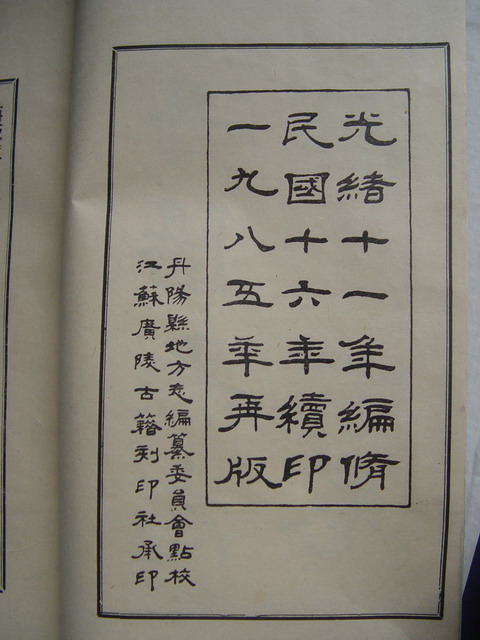 光緒十一年編脩
民國十六年續印
一九八五年再版
丹陽縣地方志編纂委員會點校
江蘇廣陵古籍刻印社承印